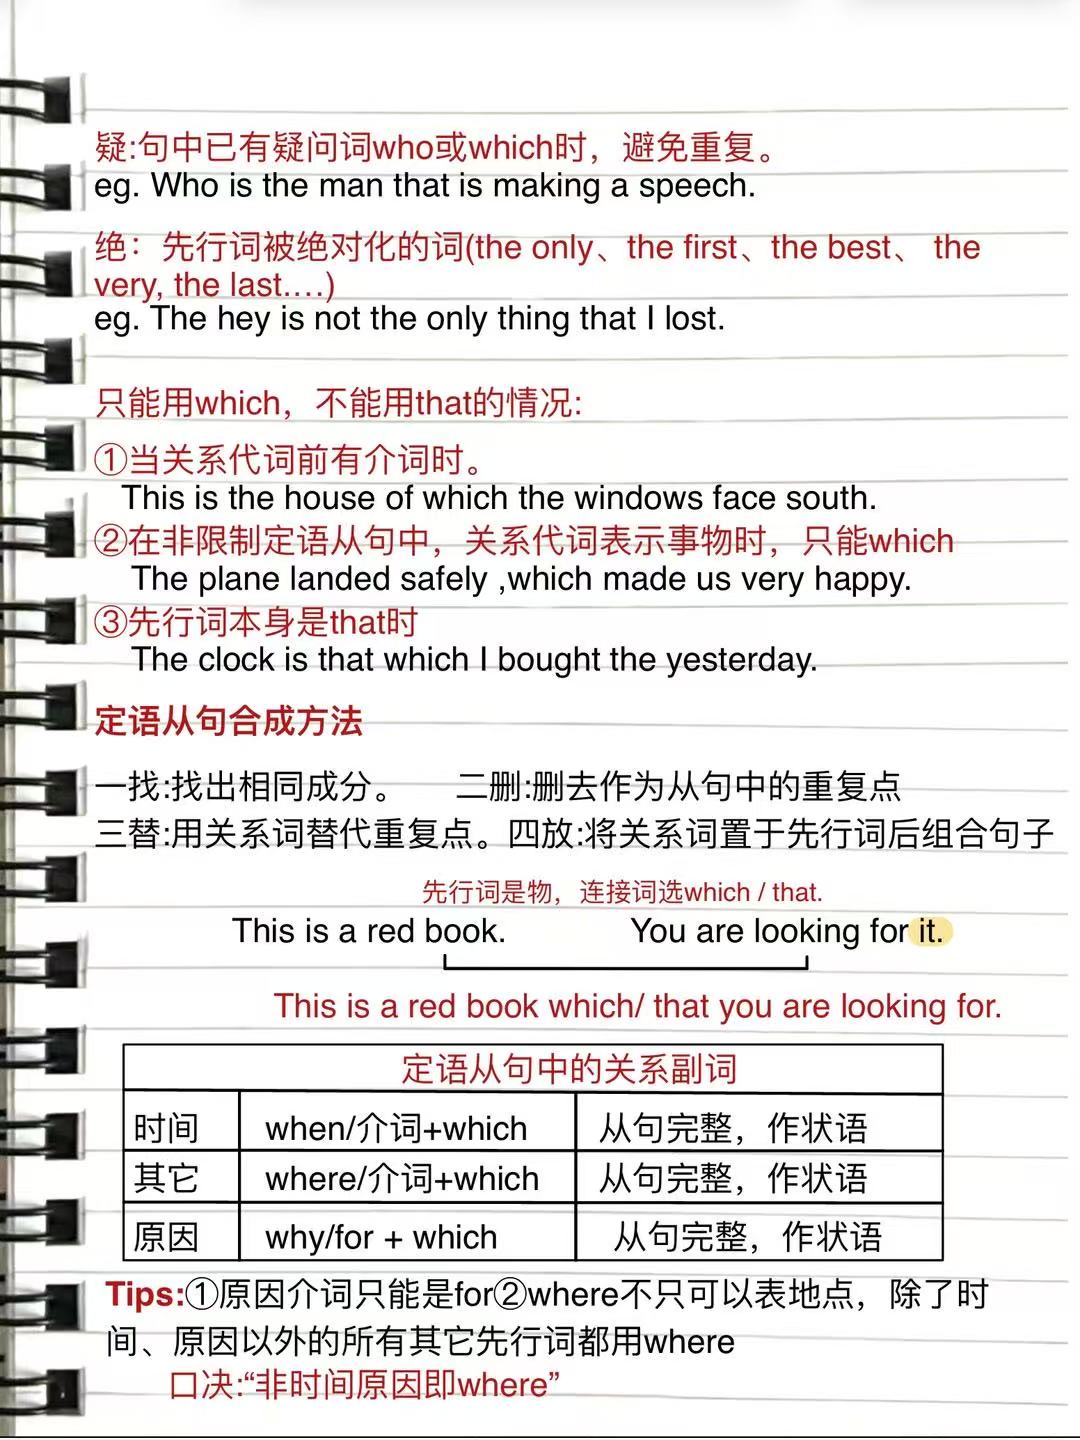 疑:句中已有疑问词who或which时，避免重复。
eg. Who is the man that is making a speech.
绝：先行词被绝对化的词(the only、the first、the best、 the
very, the last....)
eg. The hey is not the only thing that I lost.
只能用which，不能用that的情况:
①当关系代词前有介词时。
This is the house of which the windows face south.
②在非限制定语从句中，关系代词表示事物时，只能which
The plane landed safely ,which made us very happy.
③先行词本身是that时
The clock is that which I bought the yesterday.
定语从句合成方法
一找:找出相同成分。 二删:删去作为从句中的重复点
三替:用关系词替代重复点。四放:将关系词置于先行词后组合句子
先行词是物，连接词选which / that.
This is a red book. You are looking for it.
This is a red book which/ that you are looking for.
定语从句中的关系副词
时间 when/介词+which 从句完整，作状语
其它 where/介词+which 从句完整，作状语
原因 why/for + which 从句完整，作状语
Tips:①原因介词只能是for②where不只可以表地点，除了时
间、原因以外的所有其它先行词都用where
口决:“非时间原因即where”